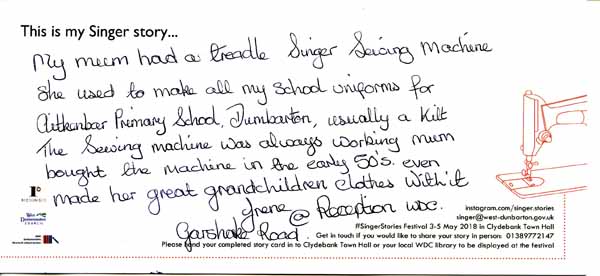 This is my Singer story...
My mum had a treadle Singer Sewing Machine
She used to make all my School Uniforms for
Aitkenbar Primary School, Dumbarton, usually a Kilt
The Sewing machine was always working mum
bought the machine in the early 50's. even
made her great grandchildren clothes with it
Irene @ Reception WDC.
Garshake Road.
instagram.com/singer.stories
singer@west-dunbarton.gov.uk
#SingerStories Festival 3-5 May 2018 in Clydebank Town Hall
Get in touch if you would like to share your story in person: 01389772147
Please send your completed story card in to Clydebank Town Hall or your local WDC library to be displayed at the festival